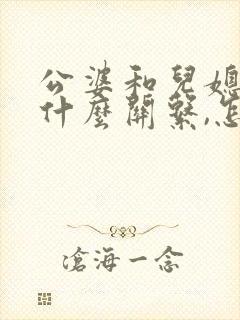 公婆和兒媳
什麼關繫,怎
滄海一念